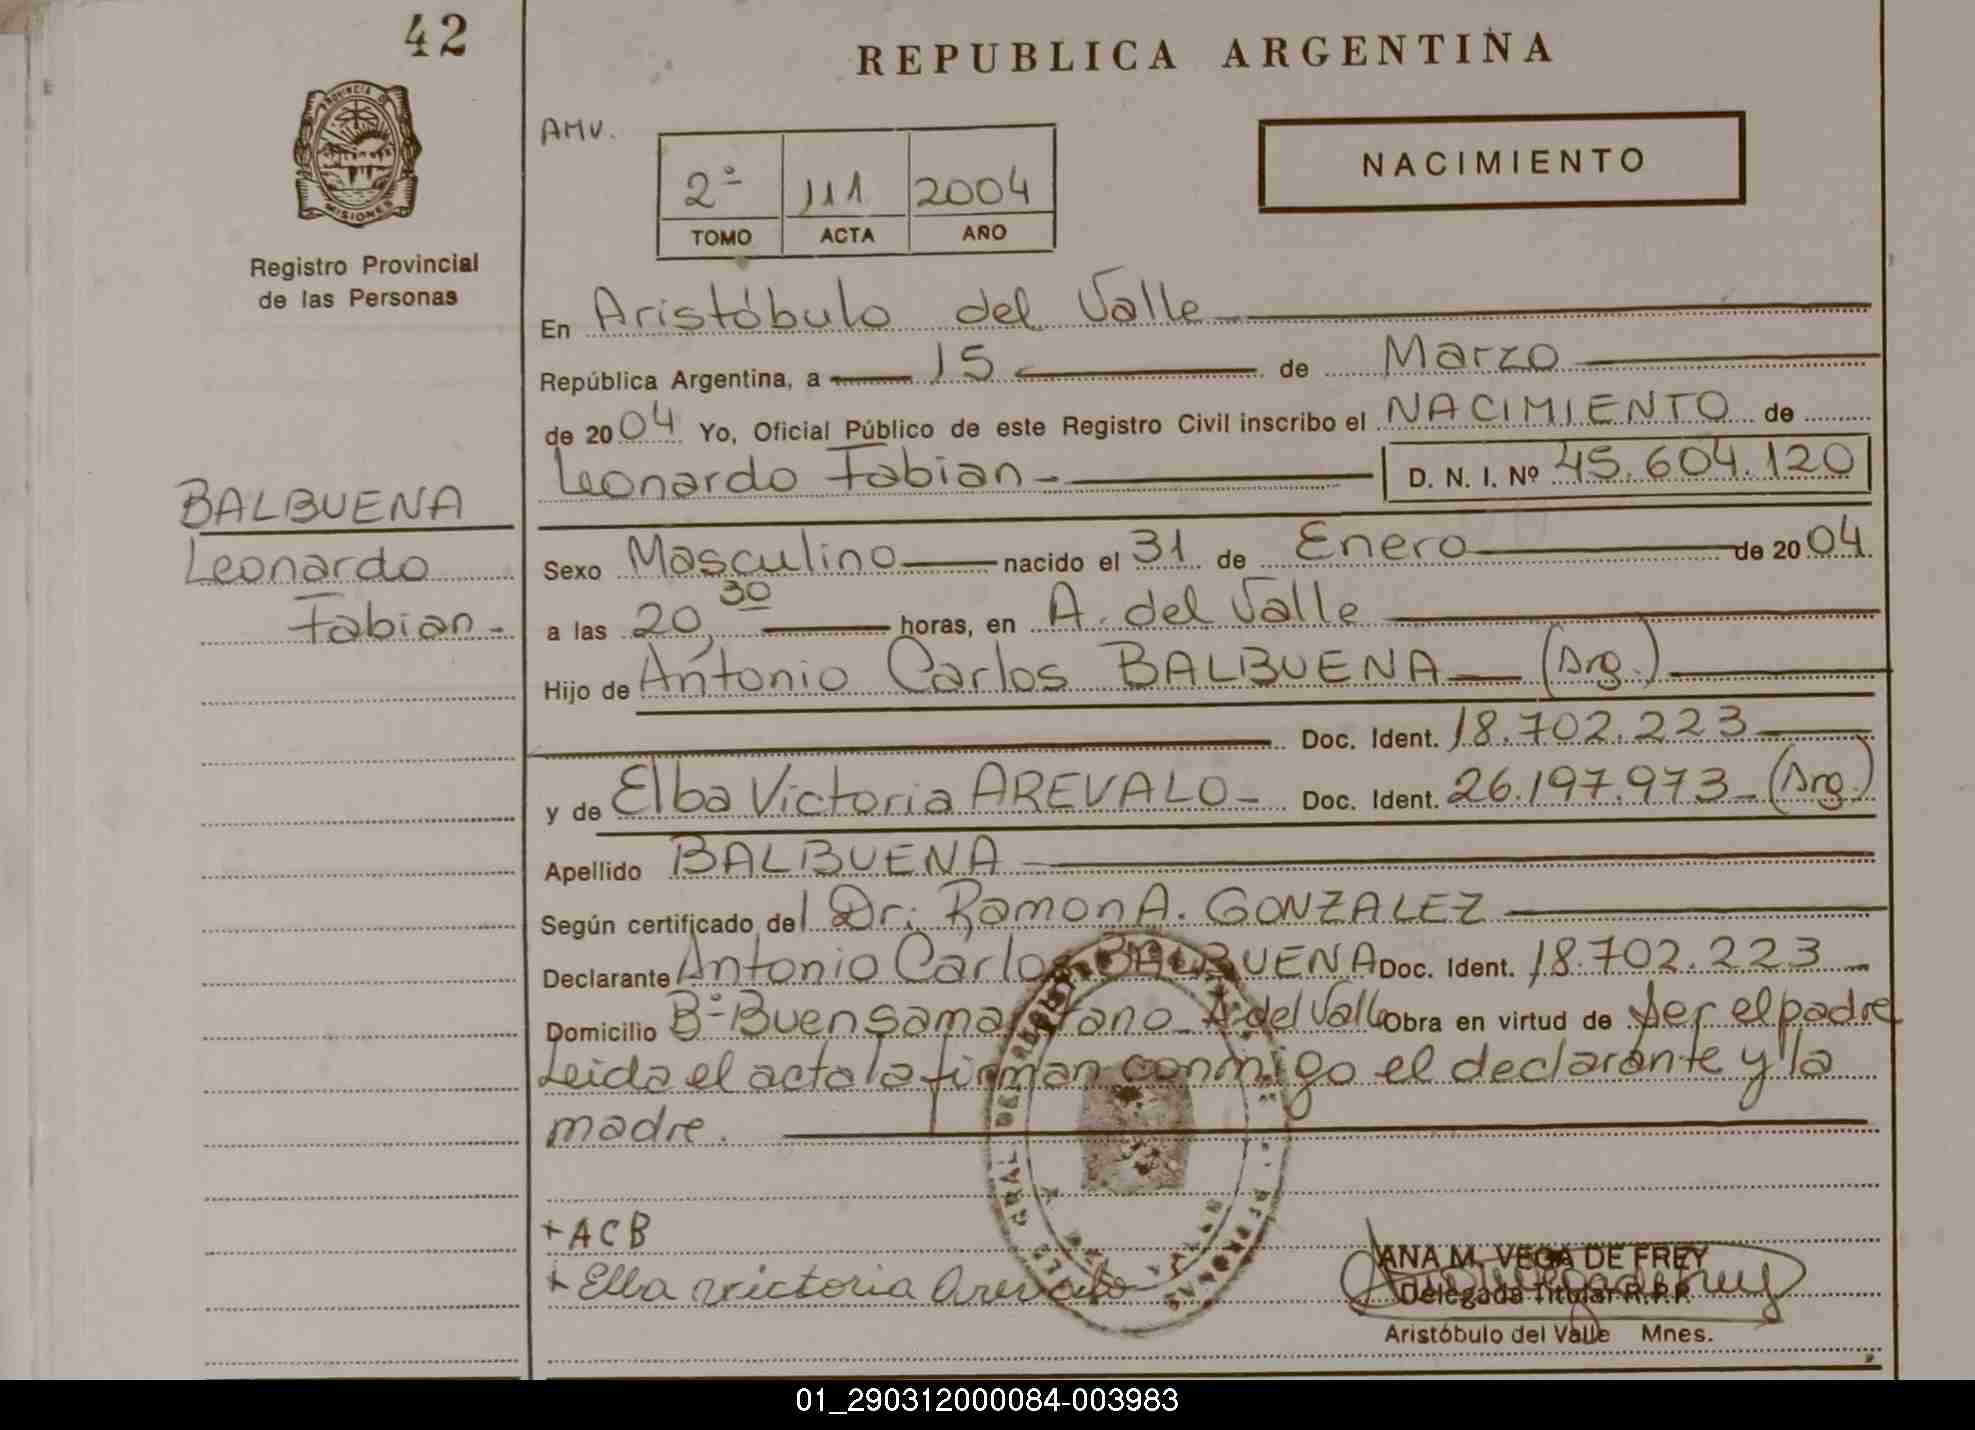 42
REPUBLICA ARGENTINA
PROVINCIA DE
MISIONES
Registro Provincial
de las Personas
AMV.
2º 111 2004
TOMO ACTA AÑO
NACIMIENTO
En Aristóbulo del Valle
República Argentina, a 15 de Marzo
de 2004 Yo, Oficial Público de este Registro Civil inscribo el NACIMIENTO de
Leonardo Fabian - D. N. I. Nº 45.604.120
BALBUENA
Leonardo
Fabian -
Sexo Masculino nacido el 31 de Enero de 2004
a las 20,30 horas, en A. del Valle
Hijo de Antonio Carlos BALBUENA (Arg.)
Doc. Ident. 18.702.223
y de Elba Victoria AREVALO - Doc. Ident. 26.197.973 - (Arg.)
Apellido BALBUENA
Según certificado del Dr. Ramon A. GONZALEZ
Declarante Antonio Carlos BALBUENA Doc. Ident. 18.702.223
Domicilio Bº Buen samaritano - A. del Valle Obra en virtud de ser el padre
Leida el acta la firman conmigo el declarante y la
madre.
+ ACB
+ Elba victoria Arevalo
ANA M. VEGA DE FREY
Delegada Titular R.P.P.
Aristóbulo del Valle Mnes.
01_290312000084-003983